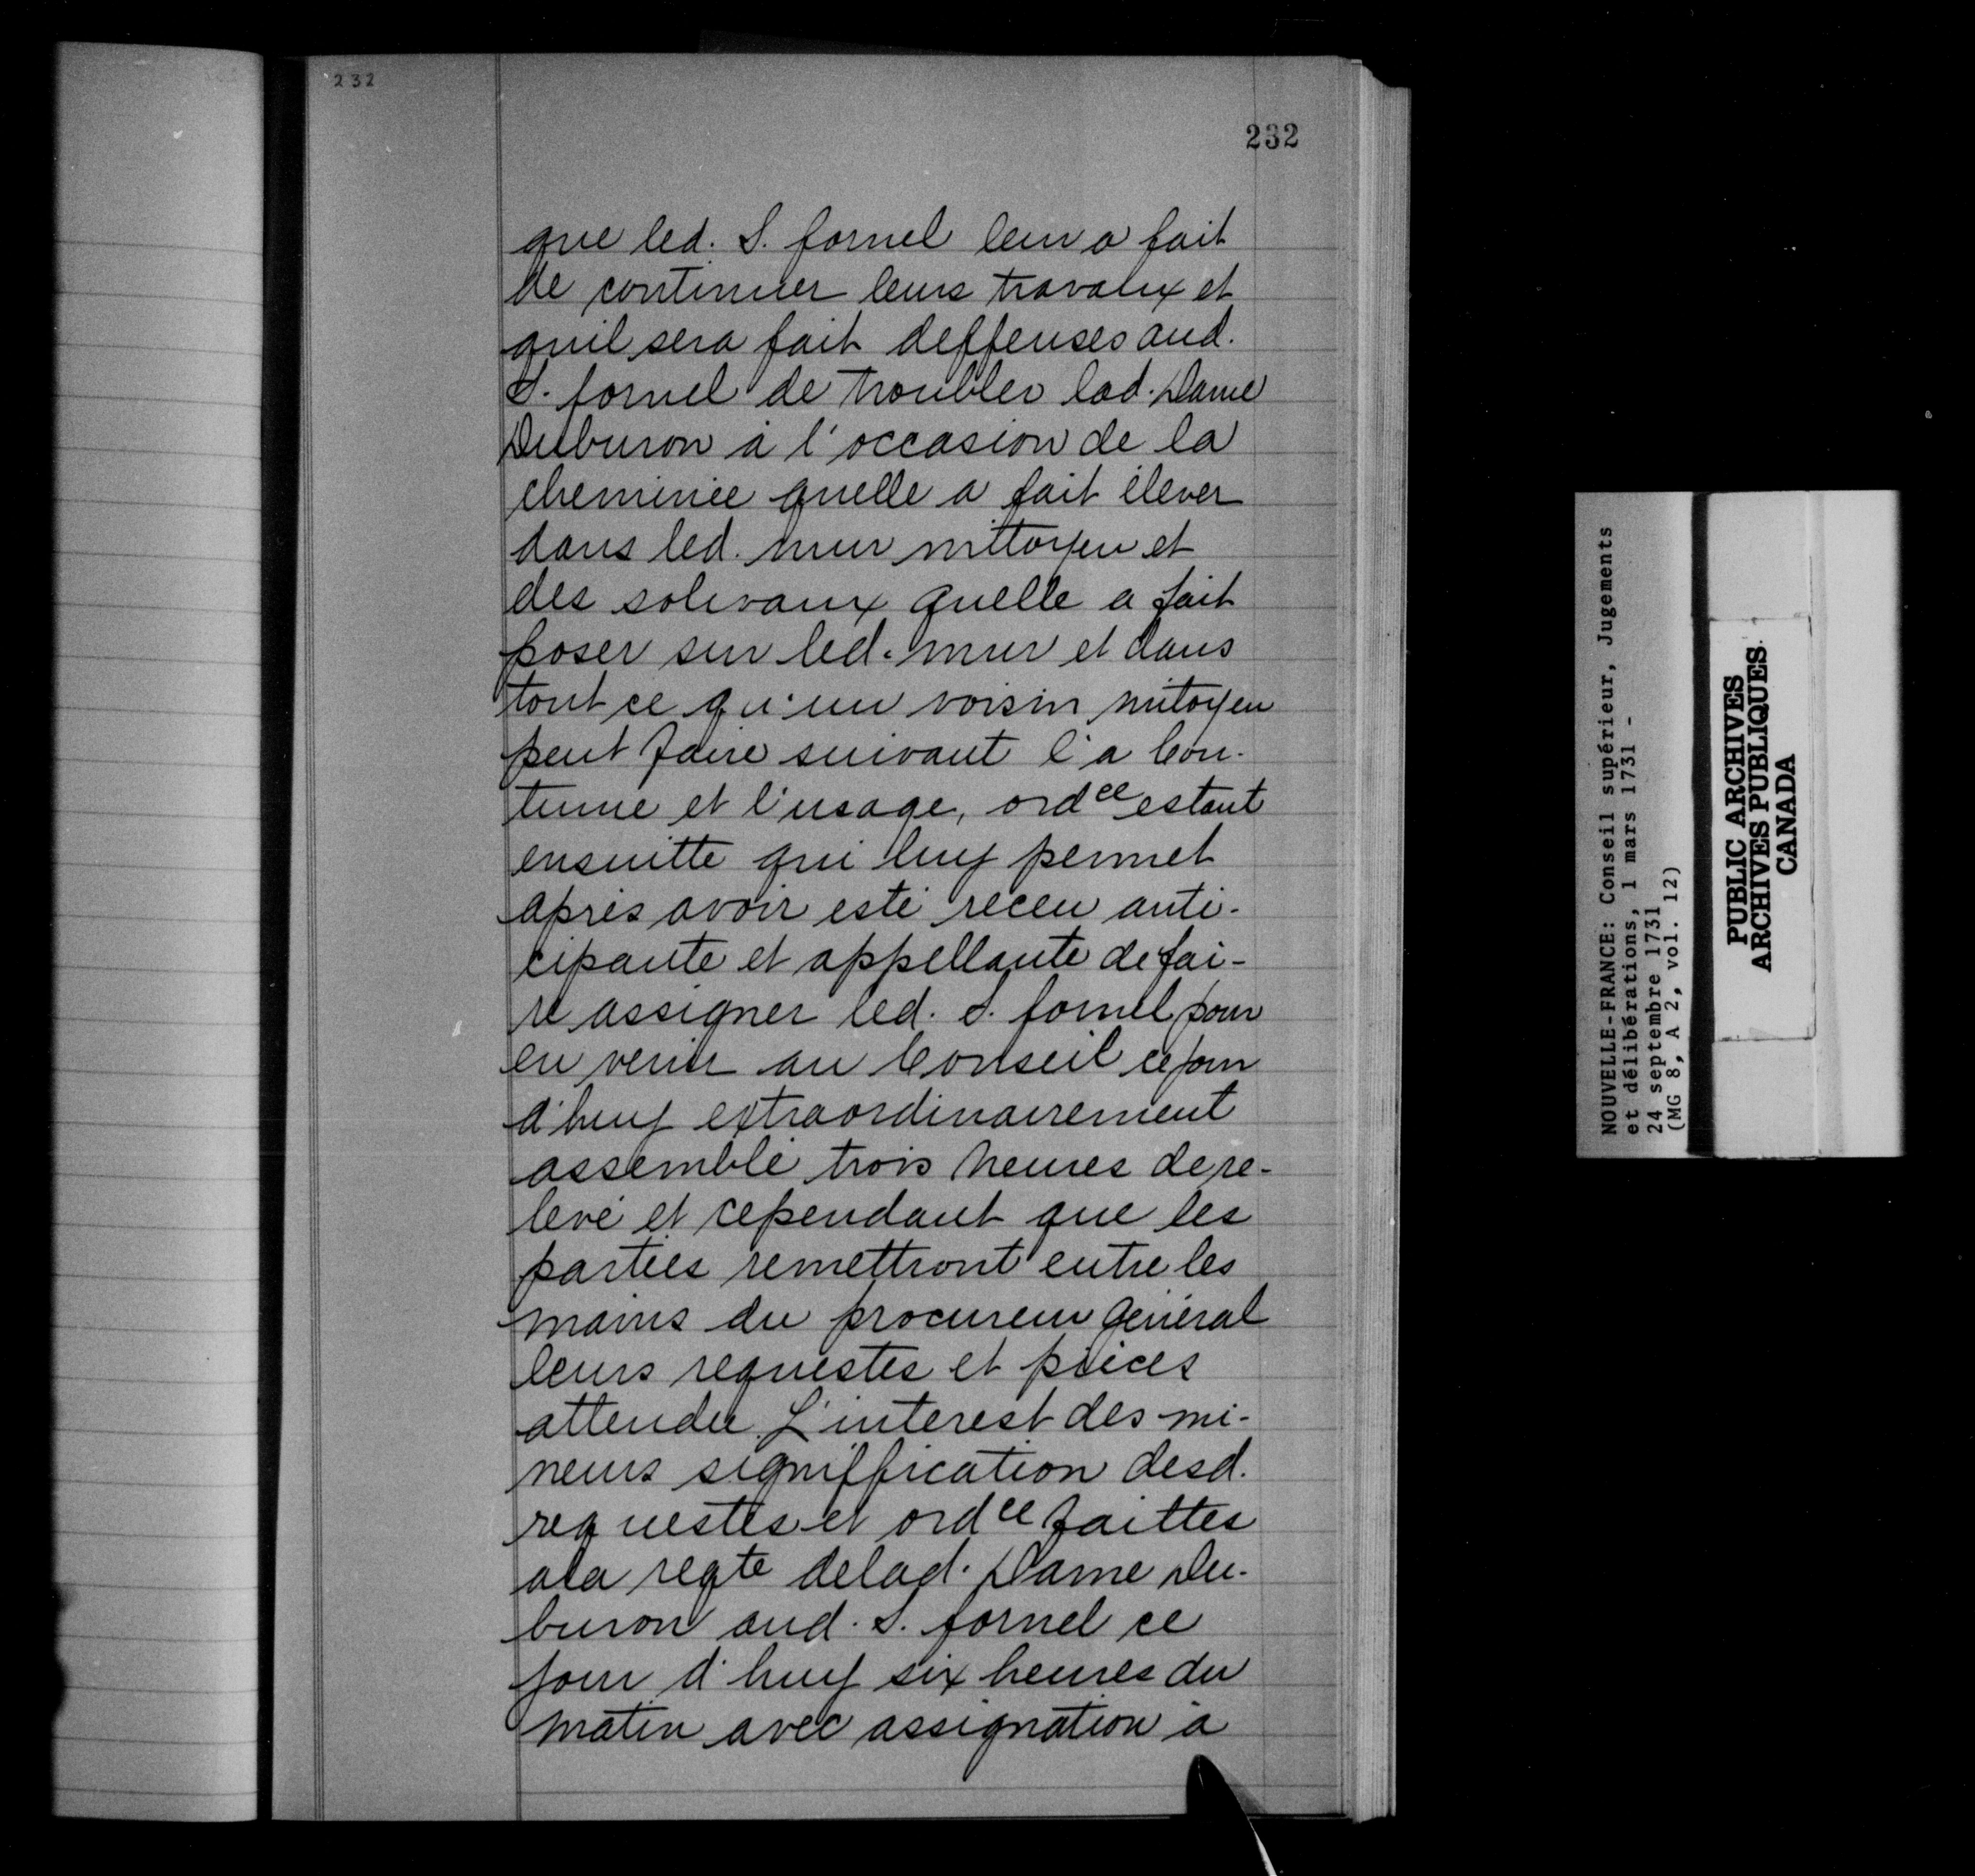 232
232
que led. S. fornel leur a fait
de continuer leurs travaux et
quil sera fait deffenses aud.
S. fornel de troubler lad. Dame
Duburon à l'occasion de la
cheminée quelle a fait élever
dans led. mur mittoyen et
des solivaux quelle a fait
poser sur led. mur et dans
tout ce qu'un voisin mitoyen
peut faire suivant l'a Cou-
tume et l'usage, ordce estant
ensuitte qui luy permet
après avoir esté receu anti-
cipante et appellante de fai-
re assigner led. S. fornel pour
en venir au Conseil ce jour
d'huy extraordinairement
assemblé trois heures de re-
levé et cependant que les
parties remettront entre les
mains du procureur général
leurs requestes et pièces
attendu L'interest des mi-
neurs signiffication desd.
requestes et ordce faittes
ala reqte delad. Dame Du-
buron aud. S. fornel ce
jour d'huy six heures du
matin avec assignation à
NOUVELLE-FRANCE: Conseil supérieur, Jugements
et délibérations, 1 mars 1731 -
24 septembre 1731
(MG 8, A 2, vol. 12)
PUBLIC ARCHIVES
ARCHIVES PUBLIQUES
CANADA